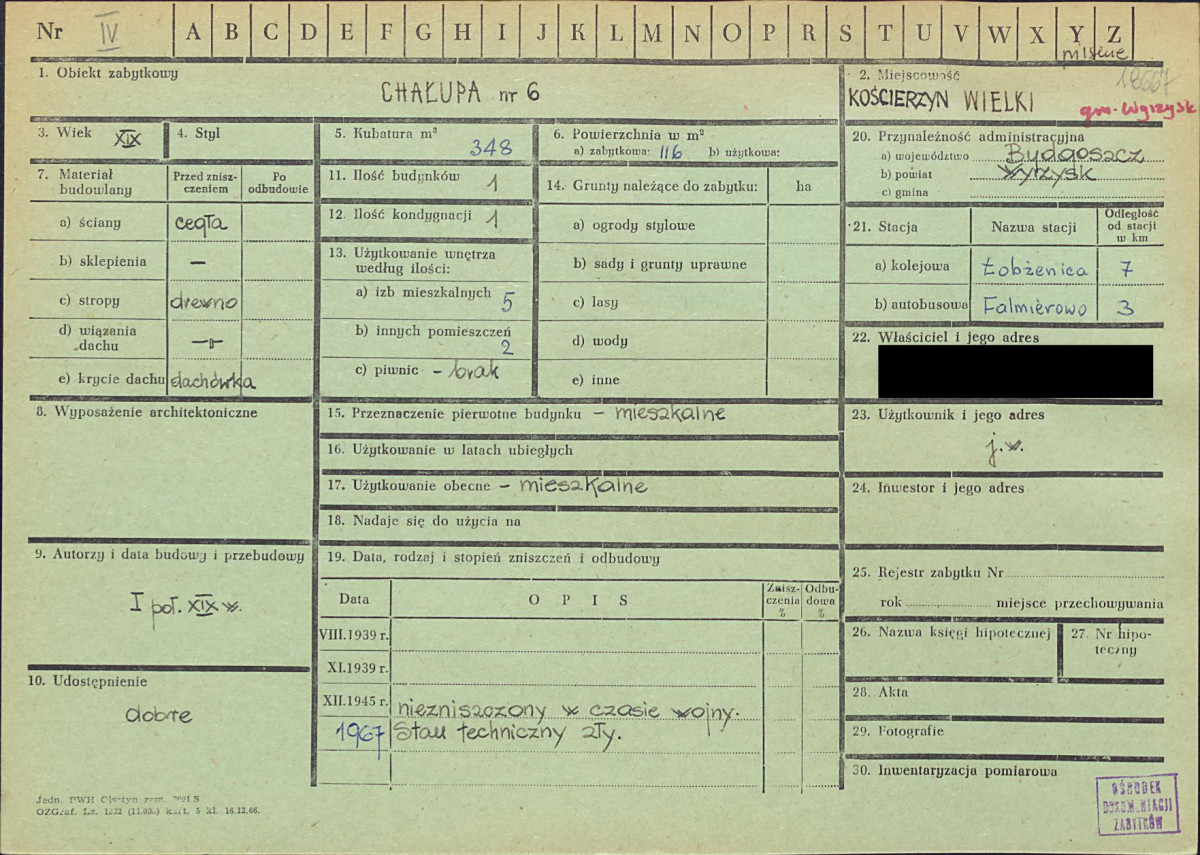 Nr IV A B C D E F G H I J K L M N O P R S T U V W X Y Z
18667
1. Obiekt zabytkowy
CHAŁUPA nr 6
2. Miejscowość
KOŚCIERZYN WIELKI
gm. Wyrzysk
3. Wiek XIX
4. Styl
5. Kubatura m³
348
6. Powierzchnia w m²
a) zabytkowa: 116 b) użytkowa:
7. Materiał budowlany
Przed zniszczeniem
Po odbudowie
a) ściany cegła
b) sklepienia –
c) stropy drewno
d) wiązania dachu
e) krycie dachu dachówka
8. Wyposażenie architektoniczne
9. Autorzy i data budowy i przebudowy
I poł. XIX w.
10. Udostępnienie
dobre
11. Ilość budynków 1
12. Ilość kondygnacji 1
13. Użytkowanie wnętrza
według ilości:
a) izb mieszkalnych 5
b) innych pomieszczeń
2
c) piwnic – brak
14. Grunty należące do zabytku: ha
a) ogrody stylowe
b) sady i grunty uprawne
c) lasy
d) wody
e) inne
15. Przeznaczenie pierwotne budynku – mieszkalne
16. Użytkowanie w latach ubiegłych
17. Użytkowanie obecne – mieszkalne
18. Nadaje się do użycia na
19. Data, rodzaj i stopień zniszczeń i odbudowy
Data OPIS Zniszczenia % Odbudowa %
VIII.1939 r.
XI.1939 r.
XII.1945 r. niezniszczony w czasie wojny.
1967 Stan techniczny zły.
20. Przynależność administracyjna
a) województwo Bydgoszcz
b) powiat Wyrzysk
c) gmina
21. Stacja Nazwa stacji Odległość od stacji w km
a) kolejowa Łobżenica 7
b) autobusowa Falmierowo 3
22. Właściciel i jego adres
23. Użytkownik i jego adres
j.w.
24. Inwestor i jego adres
25. Rejestr zabytku Nr
rok miejsce przechowywania
26. Nazwa księgi hipotecznej
27. Nr hipoteczny
28. Akta
29. Fotografie
30. Inwentaryzacja pomiarowa
OŚRODEK
DOKUMENTACJI
ZABYTKÓW
Jedn. PWH Olsztyn zam.
OZGraf. Lz. kart. 5 kl. 16.12.66.